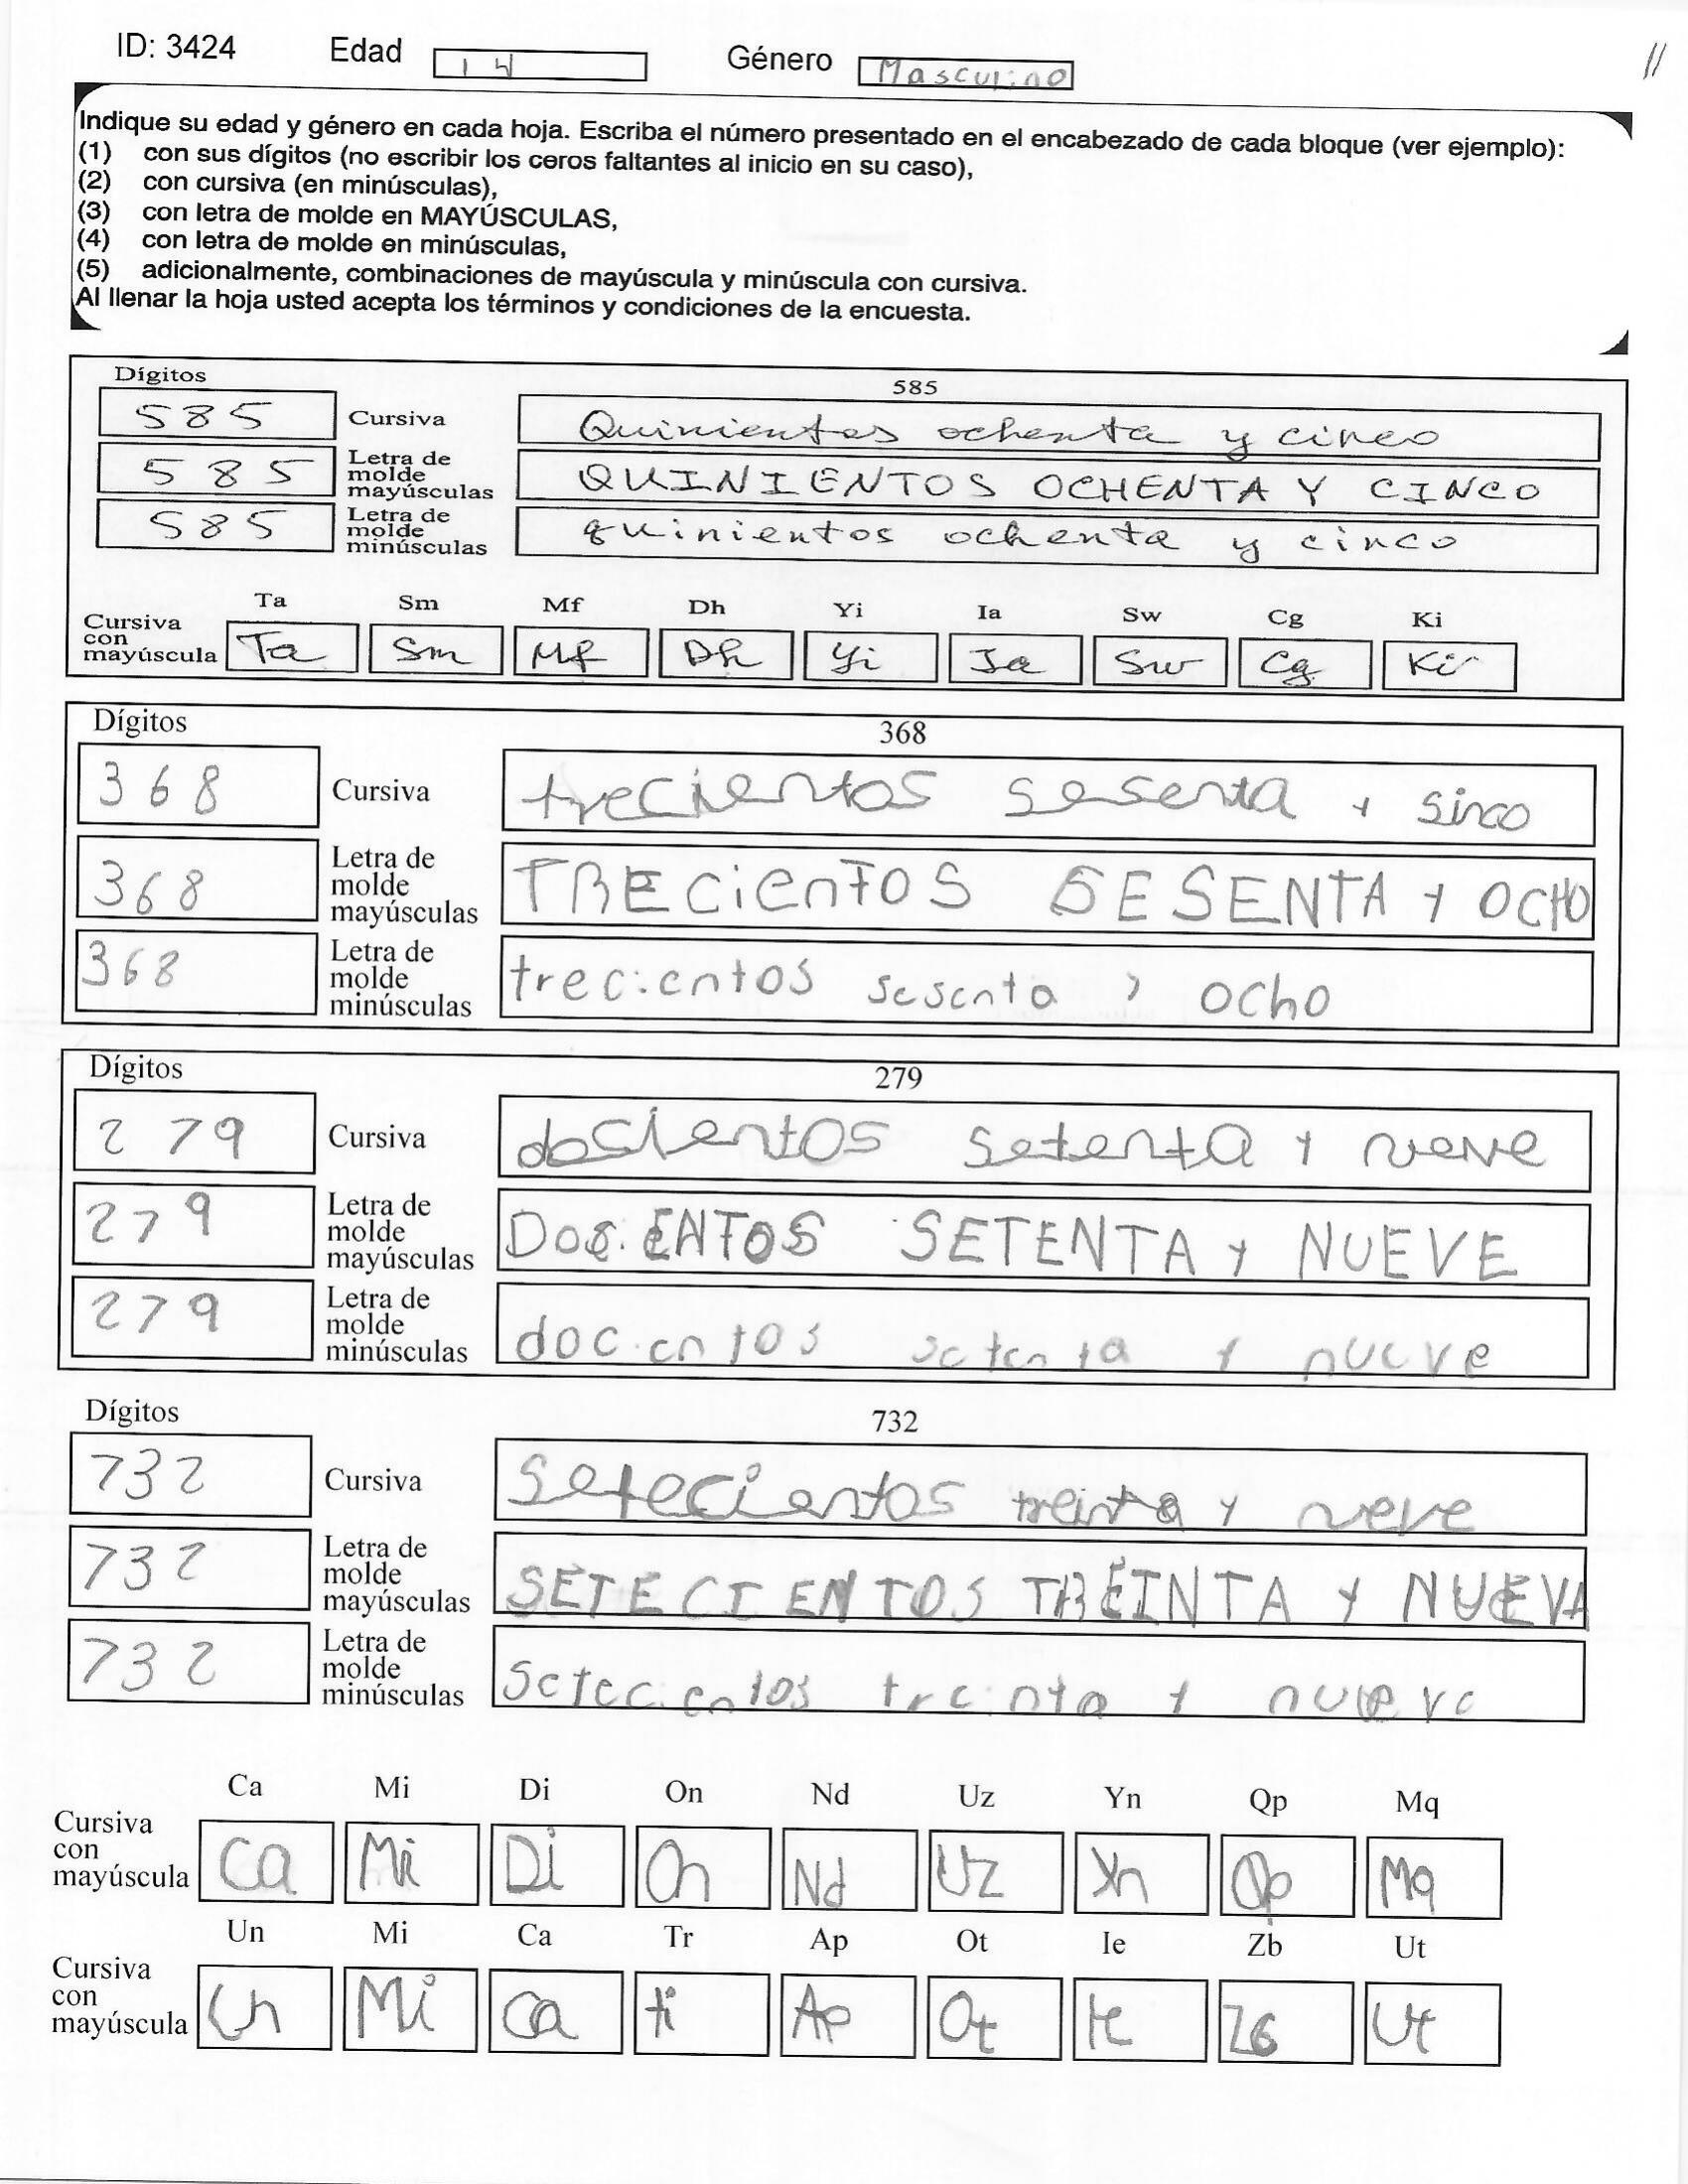 ID: 3424 Edad 14 Género Masculino 11
Indique su edad y género en cada hoja. Escriba el número presentado en el encabezado de cada bloque (ver ejemplo):
(1) con sus dígitos (no escribir los ceros faltantes al inicio en su caso),
(2) con cursiva (en minúsculas),
(3) con letra de molde en MAYÚSCULAS,
(4) con letra de molde en minúsculas,
(5) adicionalmente, combinaciones de mayúscula y minúscula con cursiva.
Al llenar la hoja usted acepta los términos y condiciones de la encuesta.
Dígitos 585
585 Cursiva Quinientos ochenta y cinco
585 Letra de molde mayúsculas QUINIENTOS OCHENTA Y CINCO
585 Letra de molde minúsculas quinientos ochenta y cinco
Ta Sm Mf Dh Yi Ia Sw Cg Ki
Cursiva con mayúscula Ta Sm Mf Dh Yi Ia Sw Cg Ki
Dígitos 368
368 Cursiva trecientos sesenta y sinco
368 Letra de molde mayúsculas TRECientOS SESENTA Y OCHO
368 Letra de molde minúsculas trecientos sesenta y ocho
Dígitos 279
279 Cursiva dosientos setenta y neve
279 Letra de molde mayúsculas DOCiENTOS SETENTA Y NUEVE
279 Letra de molde minúsculas docientos setenta y nueve
Dígitos 732
732 Cursiva setecientos treinta y neve
732 Letra de molde mayúsculas SETECIENTOS TREINTA Y NUEVA
732 Letra de molde minúsculas setecientos treinta y nueve
Ca Mi Di On Nd Uz Yn Qp Mq
Cursiva con mayúscula Ca Mi Di On Nd Uz Yn Qp Mq
Un Mi Ca Tr Ap Ot Ie Zb Ut
Cursiva con mayúscula Un Mi Ca ti Ap Ot Ie Zb Ut